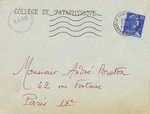 COLLÈGE DE 'PATAPHYSIQUE
Monsieur André Breton
42 rue Fontaine
Paris IXe